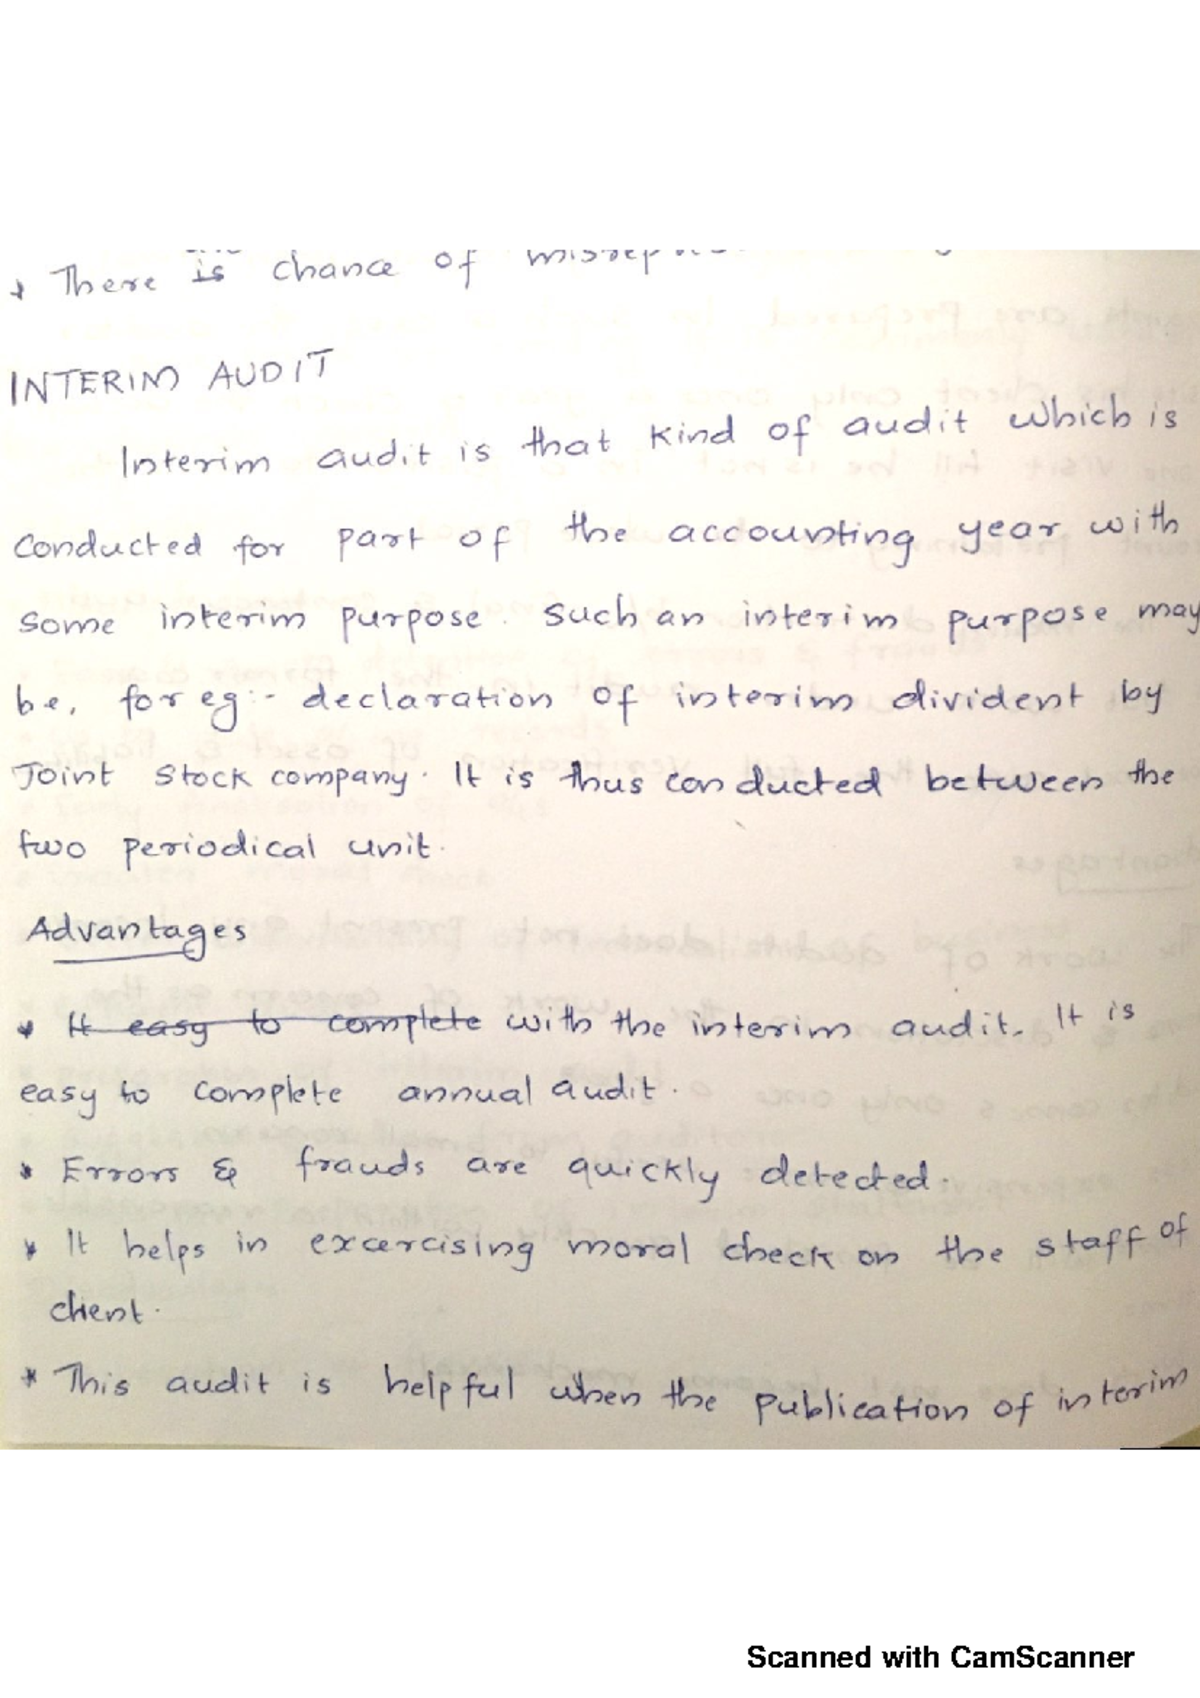 * There is chance of
INTERIM AUDIT
Interim audit is that kind of audit which is
conducted for part of the accounting year with
some interim purpose. Such an interim purpose may
be, for eg:- declaration of interim divident by
Joint stock company. It is thus conducted between the
two periodical unit.
Advantages
* It easy to complete with the interim audit. It is
easy to complete annual audit.
* Errors & frauds are quickly detected.
* It helps in excercising moral check on the staff of
client.
* This audit is helpful when the publication of interim
Scanned with CamScanner